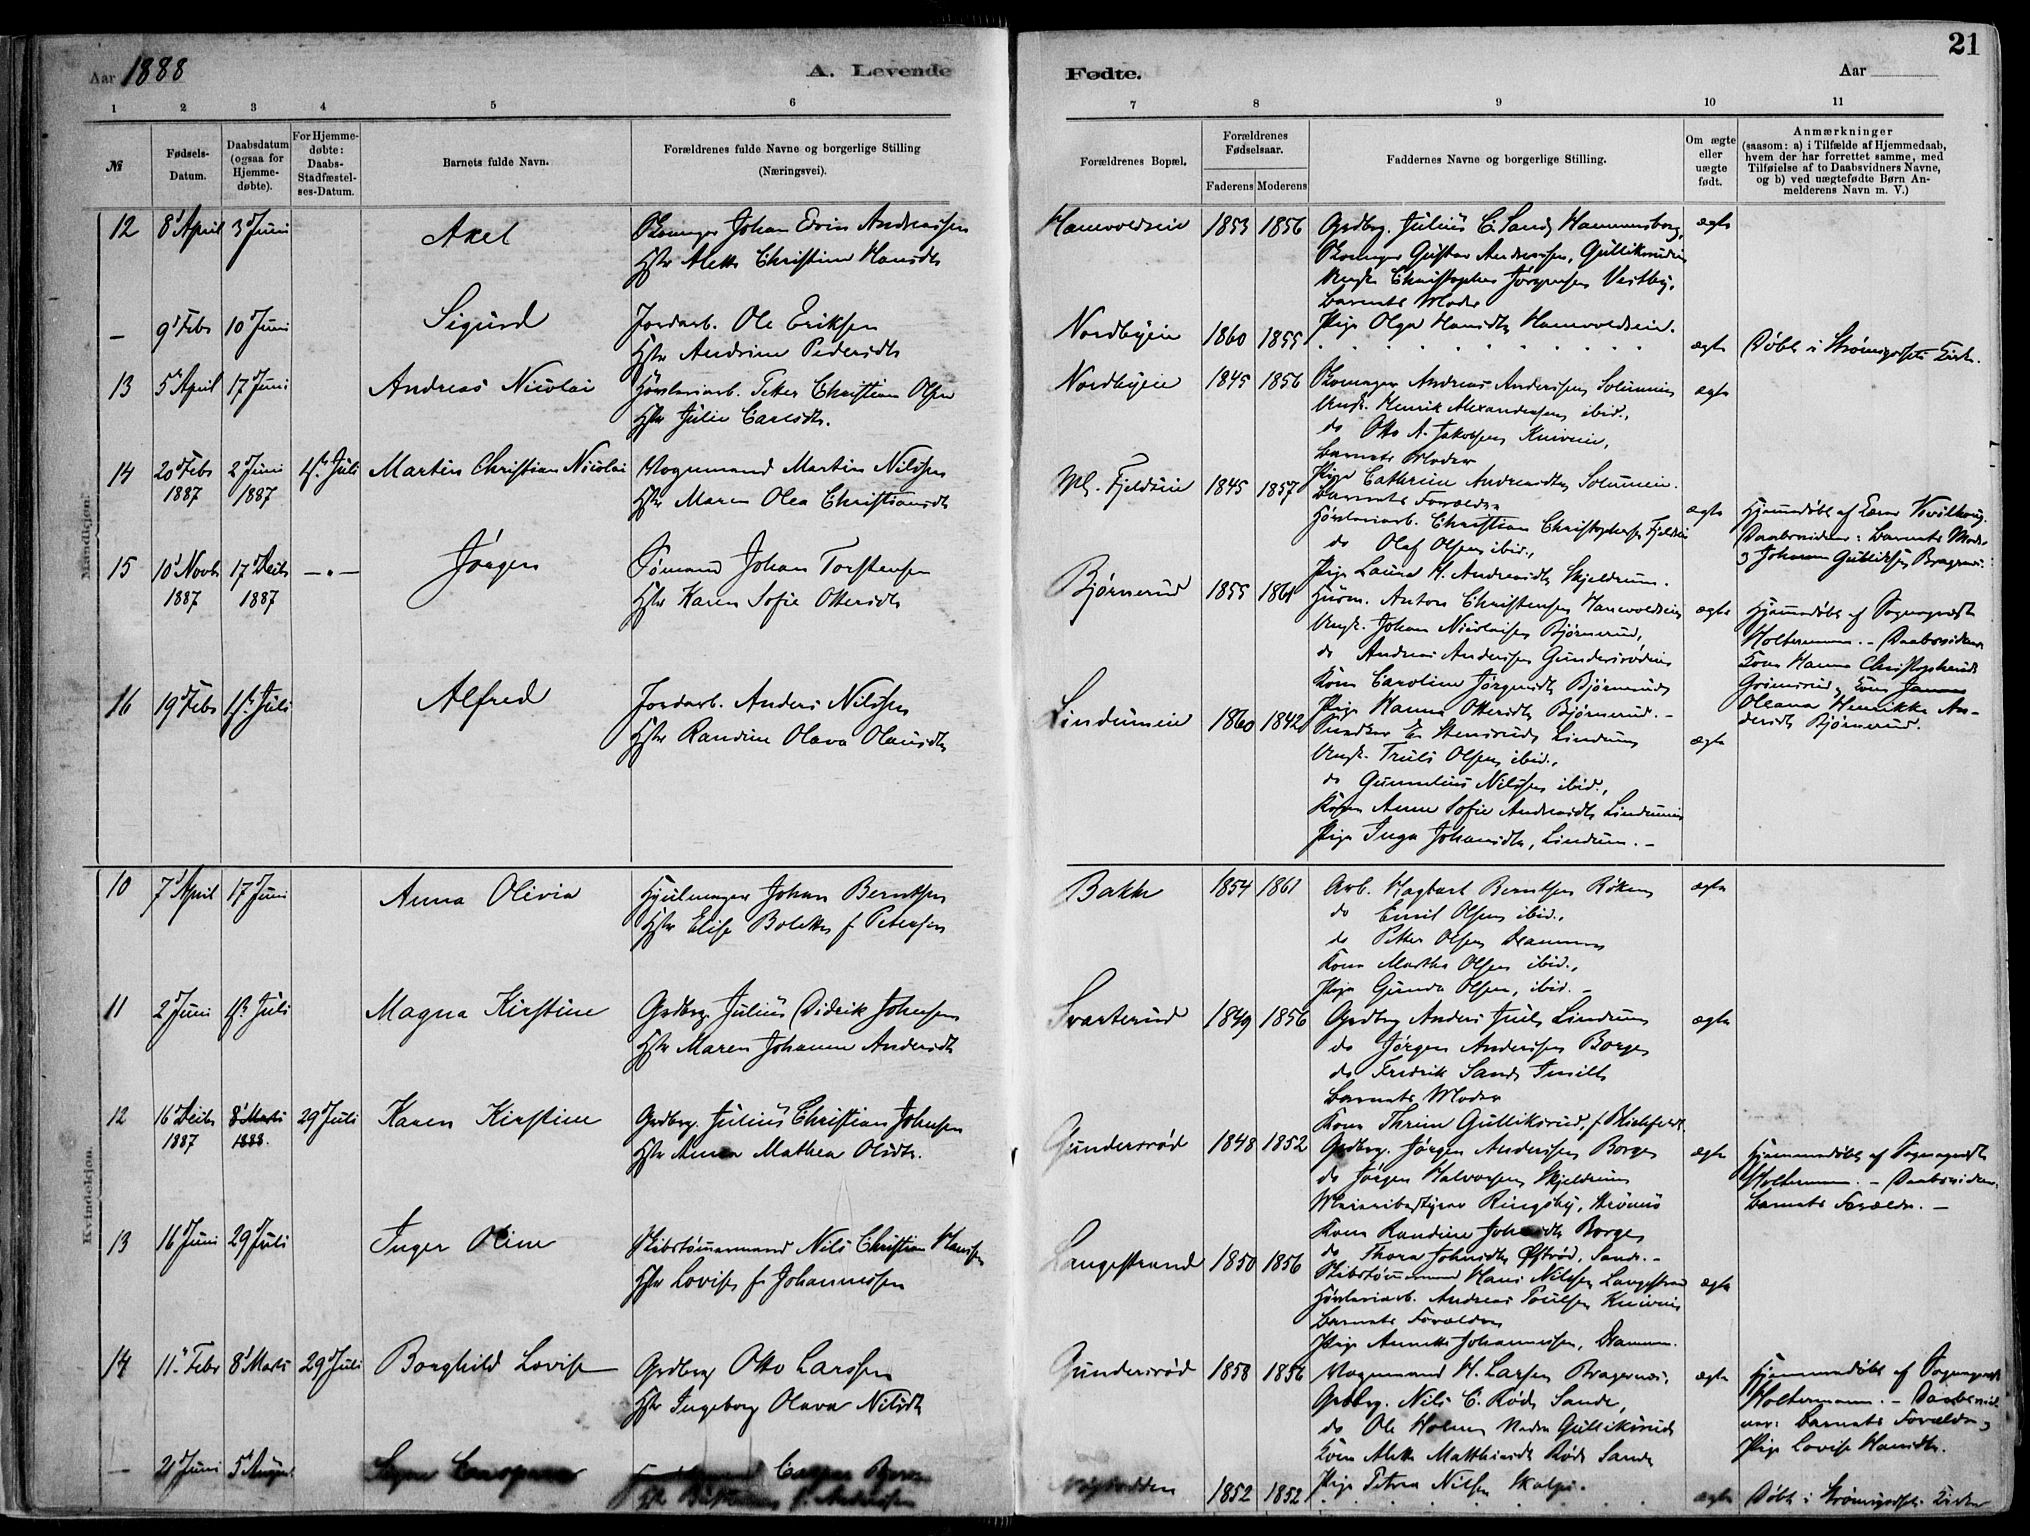 21
Aar 1888
A. Levende
Fødte.
Aar
1 2 3 4 5 6 7 8 9 10 11
№
Fødsels-
Datum.
Daabsdatum
(ogsaa for
Hjemme-
døbte).
For Hjemme-
døbte:
Daabs-
Stadfæstel-
ses-Datum.
Barnets fulde Navn.
Forældrenes fulde Navne og borgerlige Stilling
(Næringsvei).
Forældrenes Bopæl.
Forældrenes
Fødselsaar.
Faderens Moderens
Faddernes Navne og borgerlige Stilling.
Om ægte
eller
uægte
født.
Anmærkninger
(saasom: a) i Tilfælde af Hjemmedaab,
hvem der har forrettet samme, med
Tilføielse af to Daabsvidners Navne,
og b) ved uægtefødte Børn An-
melderens Navn m. V.)
Mandkjøn.
12 8' April 3' Juni Axel
Skomager Johan Edvin Andreassen
Hstr Alette Christine Hansdtr
Hanevoldseie 1853 1856
Grdbrg. Julius C. Sand, Hammersborg,
Skomager Gustav Andreassen, Gulliksrudeie
Ungk. Christopher Jørgensen Vestby,
Barnets Moder
Pige Olga Hansdtr Hanevoldseie.
ægte
— 9' Febr 10' Juni Sigurd
Jordarb. Ole Eriksen
Hstr Andrine Pedersdtr
Nordbyeie 1860 1855
ægte
Døbt i Strømsgodset Kirke.
13 5' April 17' Juni Andreas Nicolai
Høvleriarb. Peter Christian Olsen
Hstr Julie Carlsdtr.
Nordbyeie 1845 1856
Skomager Andreas Anderssen, Solumeie
Ungk. Henrik Alexandersen ibid.,
do Otto A. Jakobsen Kniveie,
Barnets Moder
Pige Cathrine Andreasdtr Solumeie.
ægte
14 20' Febr 1887 2' Juni 1887 1ste Juli Martin Christian Nicolai
Vognmand Martin Nilssen
Hstr Maren Olea Christiansdtr
Fjeldeie 1845 1857
Barnets Forældre
Høvleriarb. Christian Christophersen Fjeldeie
do Olaf Olsen ibid.,
Pige Laura H. Andreasdtr Skjeldrum.
ægte
Hjemmedøbt af
Daabsvidner: Barnets Moder
og Johan Gulliksen Bragernes.
15 10' Novbr 1887 17' Decbr 1887 — " — Jørgen
Sømand Johan Torstensen
Hstr Karen Sofie Ottersdtr
Bjørnerud 1855 1861
Husm. Anton Christensen Hanevoldseie
Ungk. Johan Nicolaisen Bjørnerud,
do Andreas Andersen Gundersrødeie
Kone Caroline Jørgensdtr Bjørnerud,
Pige Hanna Ottersdtr Bjørnerud. —
ægte
Hjemmedøbt af Sognepræst
Holtermann. — Daabsvidner
Kone Hanna Christophersdtr
Grimsrud, Kone
Oleana Henrikke An-
dersdtr Bjørnerud.
16 19' Febr 1ste Juli Alfred
Jordarb. Anders Nilssen
Hstr Randine Olava Olausdtr
Lindumeie 1860 1842
Snedker E. Stensrud, Lindum
Ungk. Truls Olsen ibid.,
do Gunelius Nilssen ibid.,
Konen Anne Sofie Andreasdtr Lindumeie
Pige Inga Johansdtr, Lindum. —
ægte
Kvindekjøn.
10 7' April 17' Juni Anna Olivia
Hjulmager Johan Berntsen
Hstr Elise Bolette f Petersen
Bakke 1854 1861
Arb. Hagbart Berntsen Røken
do Emil Olsen ibid.,
do Petter Olsen Drammen
Kone Marthe Olsen ibid.,
Pige Gunda Olsen, ibid. —
ægte
11 2' Juni 1ste Juli Magna Kirstine
Grdbrg. Julius Didrik Johnsen
Hstr Maren Johanne Andersdtr
Svarterud 1849 1856
Grdbrg Anders Juel, Lindum
do Jørgen Anderssen Borge
do Fredrik Sand, Smith
Barnets Moder
Kone Thrine Gulliksrud, f. Blichfeldt.
ægte
12 16' Decbr 1887 8' Marts 1888. 29' Juli Karen Kirstine
Grdbrg. Julius Christian Johnsen
Hstr Anna Mathea Olsdtr.
Gundersrød 1848 1852
Grdbrg. Jørgen Anderssen Borge
do Jørgen Halvorsen Skjeldrum
Meieribestyrer Ringsby, Strømsø
Kone Randine Johnsdtr Borge
do Thora Johnsdtr Østrød, Sande. —
ægte
Hjemmedøbt af Sognepræst
Holtermann. — Daabsvidner:
Barnets Forældre. —
13 16' Juni 29' Juli Inger Oline
Skibstømmermand Nils Christian Hanssen
Hstr Lovise f. Johannessen
Langestrand 1850 1856
Skibstømmermand Hans Nilssen Langestrand
Høvleriarb. Andreas Poulsen Kniveie
Barnets Forældre
Pige Annette Johannessen, Drammen.
ægte
14 11' Febr 8' Marts 29' Juli Borghild Lovise
Grdbrg Otto Larssen
Hstr Ingeborg Olava Nilsdtr
Gundersrød 1858 1856
Vognmand H. Larsen Bragernes,
Grdbrg. Nils C. Rød, Sande,
do Ole Holm Nedre Gulliksrud
Kone Alette Matthisdtr Rød, Sande
Pige Petra Nilsen Skalpe.
ægte
Hjemmedøbt af Sognepræst
Holtermann. — Daabsvid-
ner: Barnets Forældre og
Pige Lovise Hansdtr.
— 21' Juni 5' August
1852 1852
ægte
Døbt i Strømsgodset Kirke